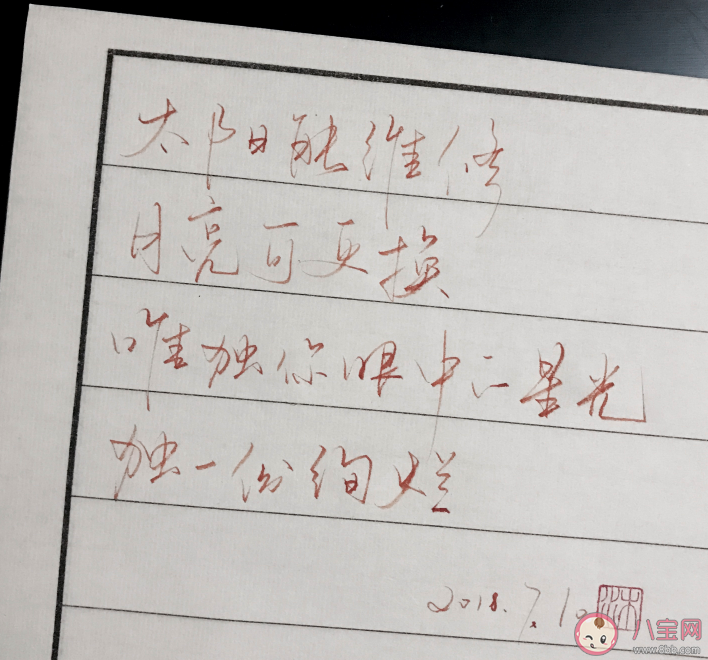 太阳能维修
月亮可更换
唯独你眼中的星光
独一份绚烂
2018.7.10
八宝网
www.8bb.com